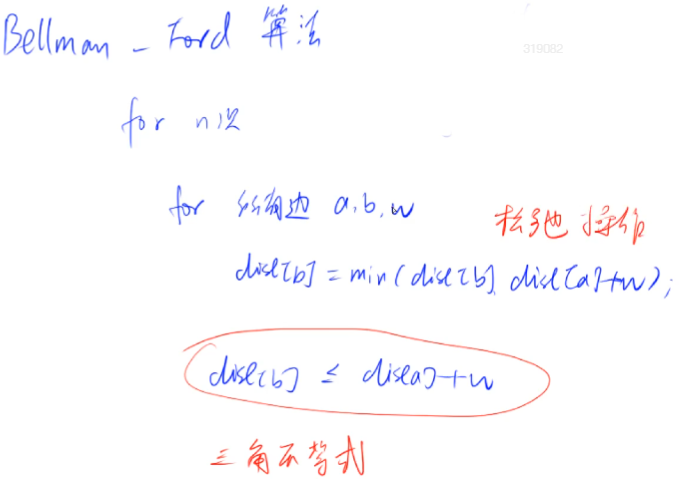 Bellman - Ford 算法
319082
for n次
for 所有边 a,b,w
松弛操作
dist[b] = min(dist[b], dist[a]+w);
dist[b] ≤ dist[a]+w
三角不等式